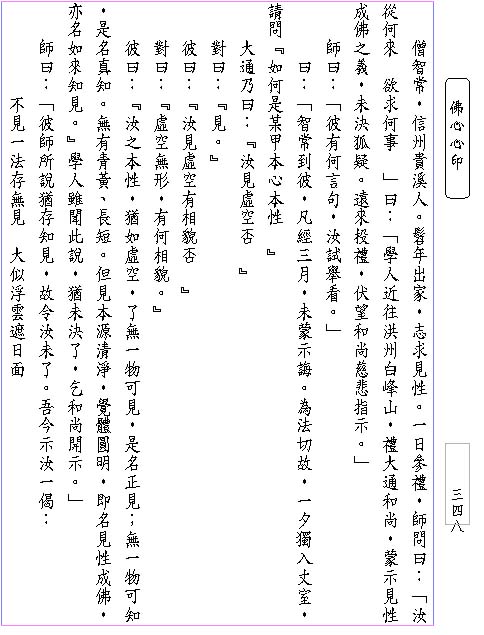 佛心心印
僧智常，信州貴溪人。髫年出家，志求見性。一日參禮，師問曰：「汝
從何來　欲求何事　」曰：「學人近往洪州白峰山，禮大通和尚，蒙示見性
成佛之義，未決狐疑。遠來投禮，伏望和尚慈悲指示。」
師曰：「彼有何言句，汝試舉看。」
曰：「智常到彼，凡經三月，未蒙示誨。為法切故，一夕獨入丈室，
請問『如何是某甲本心本性　』
大通乃曰：『汝見虛空否　』
對曰：『見。』
彼曰：『汝見虛空有相貌否　』
對曰：『虛空無形，有何相貌。』
彼曰：『汝之本性，猶如虛空，了無一物可見，是名正見；無一物可知
，是名真知。無有青黃、長短。但見本源清淨，覺體圓明，即名見性成佛，
亦名如來知見。』學人雖聞此說，猶未決了，乞和尚開示。」
師曰：「彼師所說猶存知見，故令汝未了。吾今示汝一偈：
不見一法存無見　大似浮雲遮日面
三四八